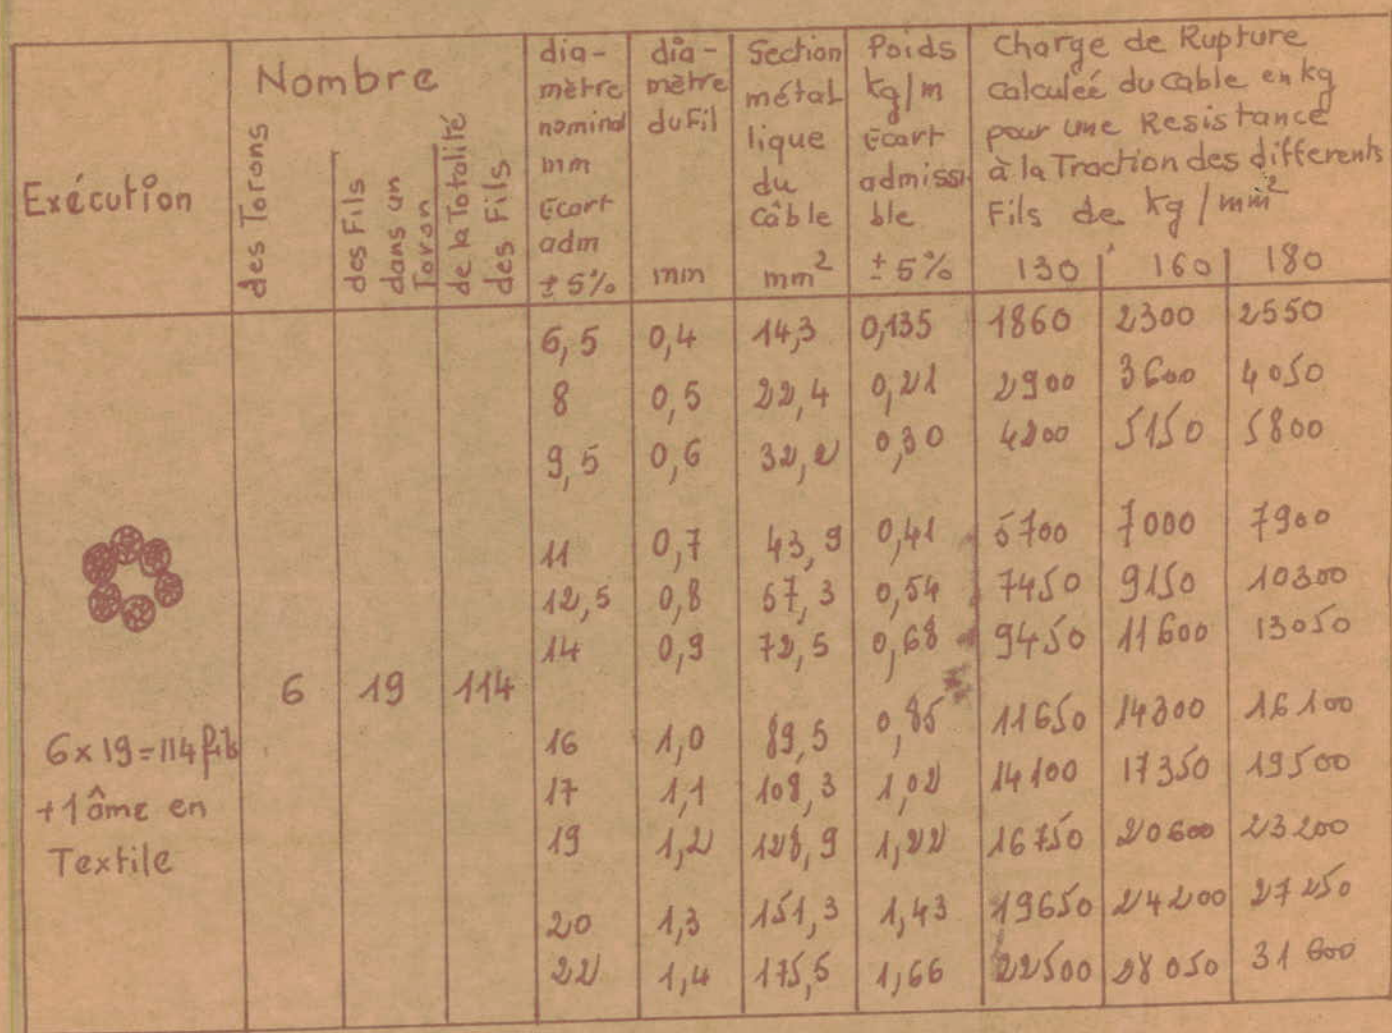 Exécution
Nombre
des Torons
des Fils dans un Toron
de la Totalité des Fils
dia-
mètre
nominal
mm
Ecart
adm
± 5%
dia-
mètre
du Fil
mm
Section
métal
lique
du
câble
mm²
Poids
kg/m
Ecart
admissi
ble
± 5%
Charge de Rupture
calculéé du cable en kg
pour une Resistance
à la Traction des differents
Fils de kg/mm²
130 160 180
6,5 0,4 14,3 0,135 1860 2300 2550
8 0,5 22,4 0,21 2900 3600 4050
9,5 0,6 32,2 0,30 4200 5150 5800
11 0,7 43,9 0,41 5700 7000 7900
12,5 0,8 57,3 0,54 7450 9150 10300
14 0,9 72,5 0,68 9450 11600 13050
6 19 114
16 1,0 89,5 0,85 11650 14300 16100
6 x 19 = 114 fils
17 1,1 108,3 1,02 14100 17350 19500
+ 1 âme en
19 1,2 128,9 1,22 16750 20600 23200
Textile
20 1,3 151,3 1,43 19650 24200 27250
22 1,4 175,5 1,66 22500 28050 31600